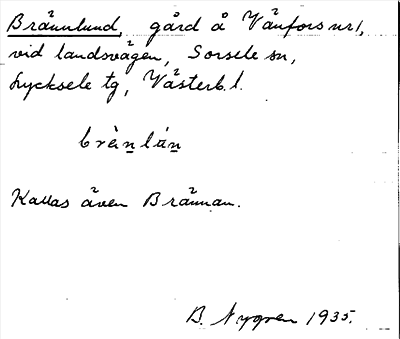 Brännlund, gård å Vänfors nr 1,
vid landsvägen, Sorsele sn,
Lycksele tg, Västerb. l.
brȁn̲lán̲
Kallas även Brännan.
B. Nygren 1935.